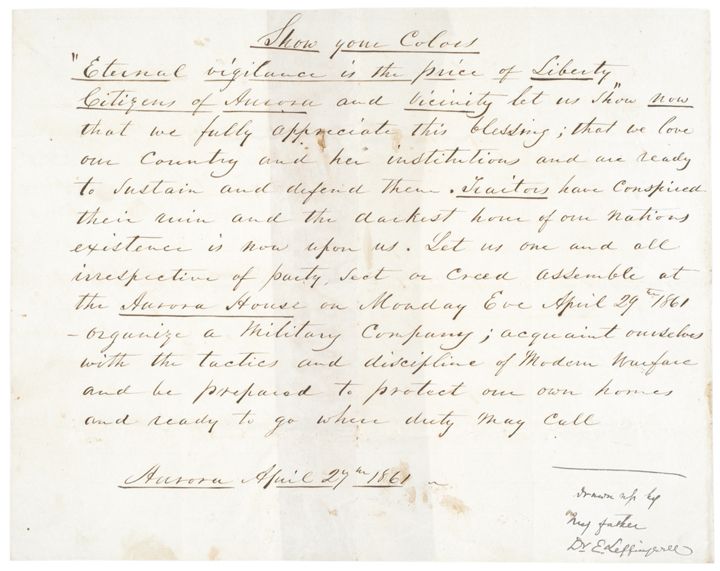 Show your Colors
"Eternal vigilance is the price of Liberty
Citizens of Aurora and Vicinity let us "Show now
that we fully appreciate this blessing; that we love
our Country and her institutions and are ready
to sustain and defend them. Traitors have Conspired
their ruin and the darkest hour of our Nations
existence is now upon us. Let us one and all
irrespective of party, Sect or Creed assemble at
the Aurora House on Monday Eve April 29th 1861
- organize a Military Company; acquaint ourselves
with the tactics and discipline of Modern Warfare
and be prepared to protect our own homes
and ready to go where duty May Call
Aurora April 27th 1861
Drawn up by
my father
Dr. E. Leffingwell